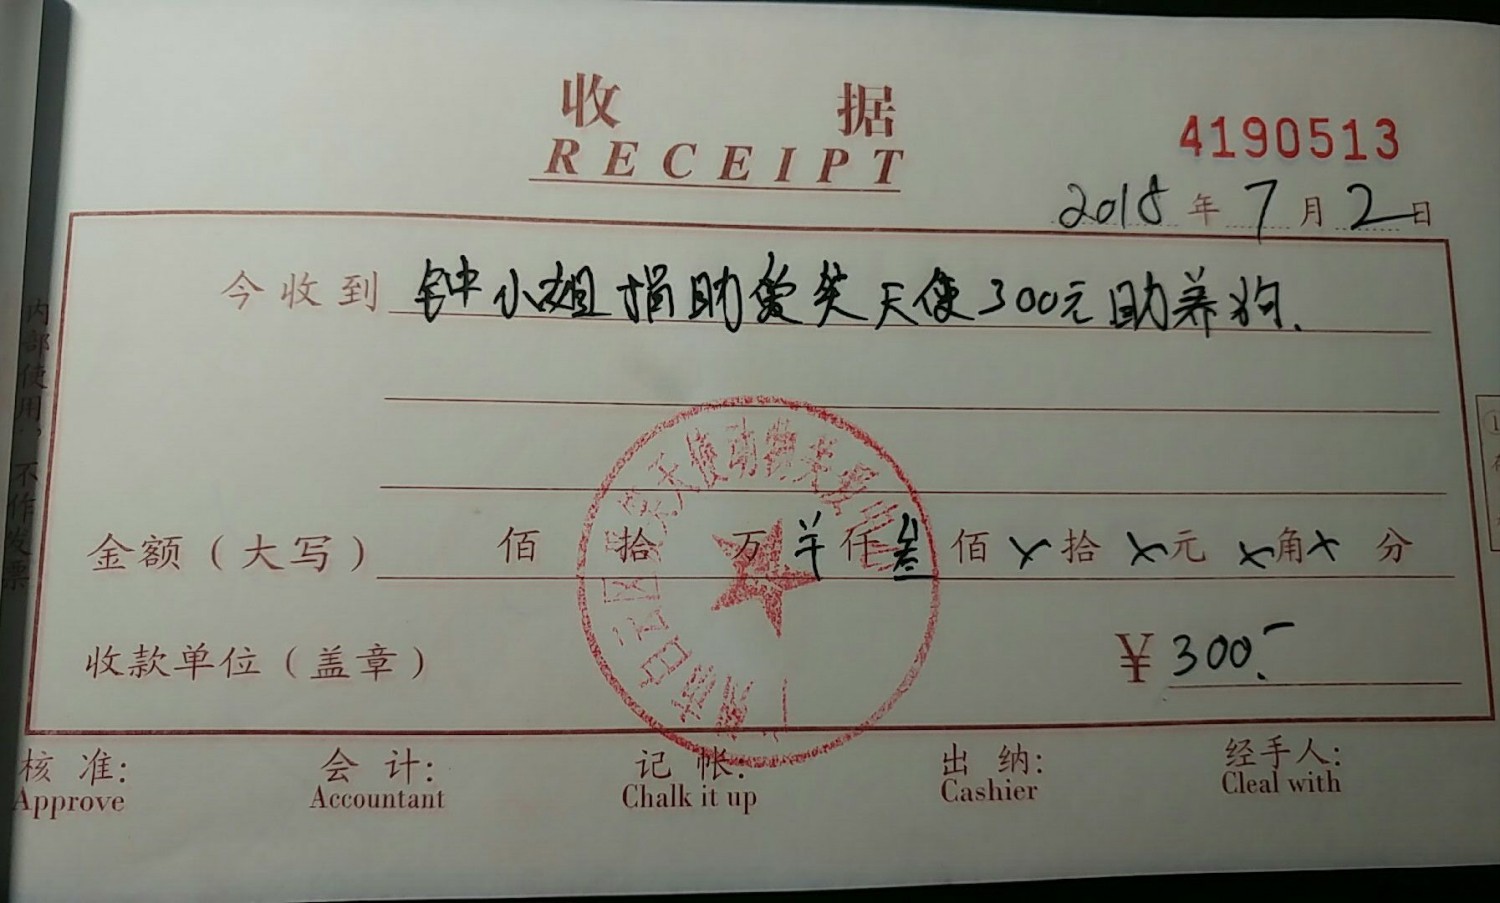 收 据
RECEIPT
4190513
2018 年 7 月 2 日
今收到 钟小姐捐助爱笑天使300元助养狗.
金额（大写） 佰 拾 万 羊 仟 叁 佰 × 拾 × 元 × 角 × 分
收款单位（盖章） ¥ 300.-
核 准: 会 计: 记 帐: 出 纳: 经手人:
Approve Accountant Chalk it up Cashier Cleal with
内部使用，不作发票